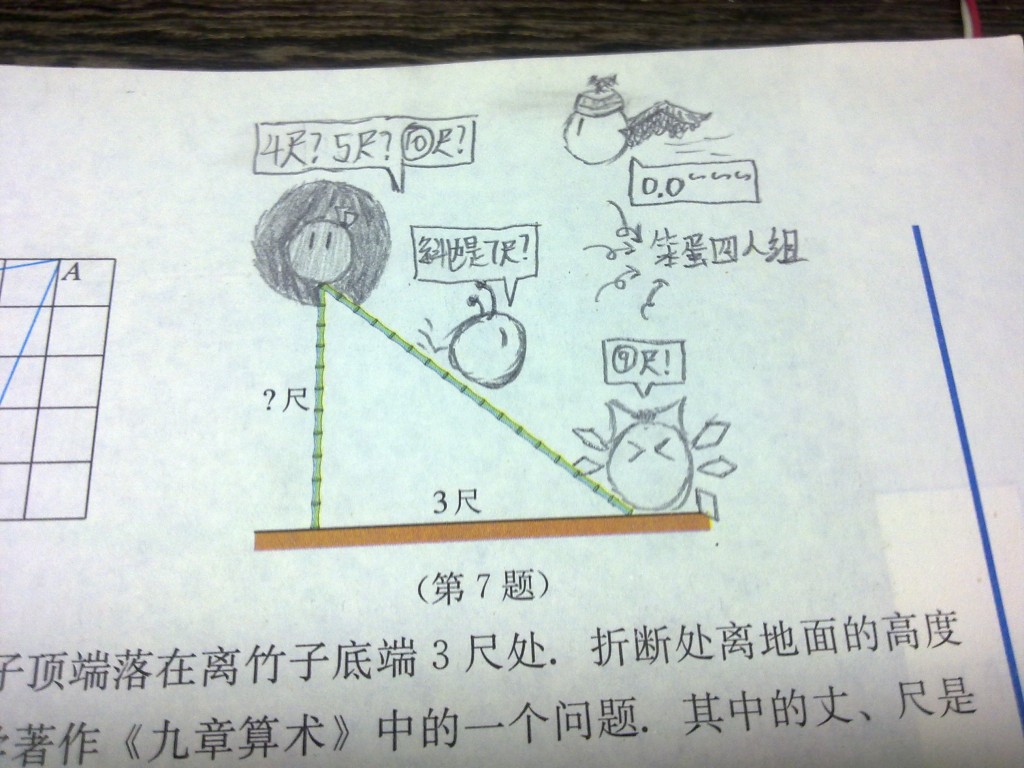 4尺？5尺？⑩尺？
0.0~~~
斜边是7尺？
笨蛋四人组
A
⑨尺！
？尺
3尺
（第7题）
子顶端落在离竹子底端3尺处．折断处离地面的高度
著作《九章算术》中的一个问题．其中的丈、尺是